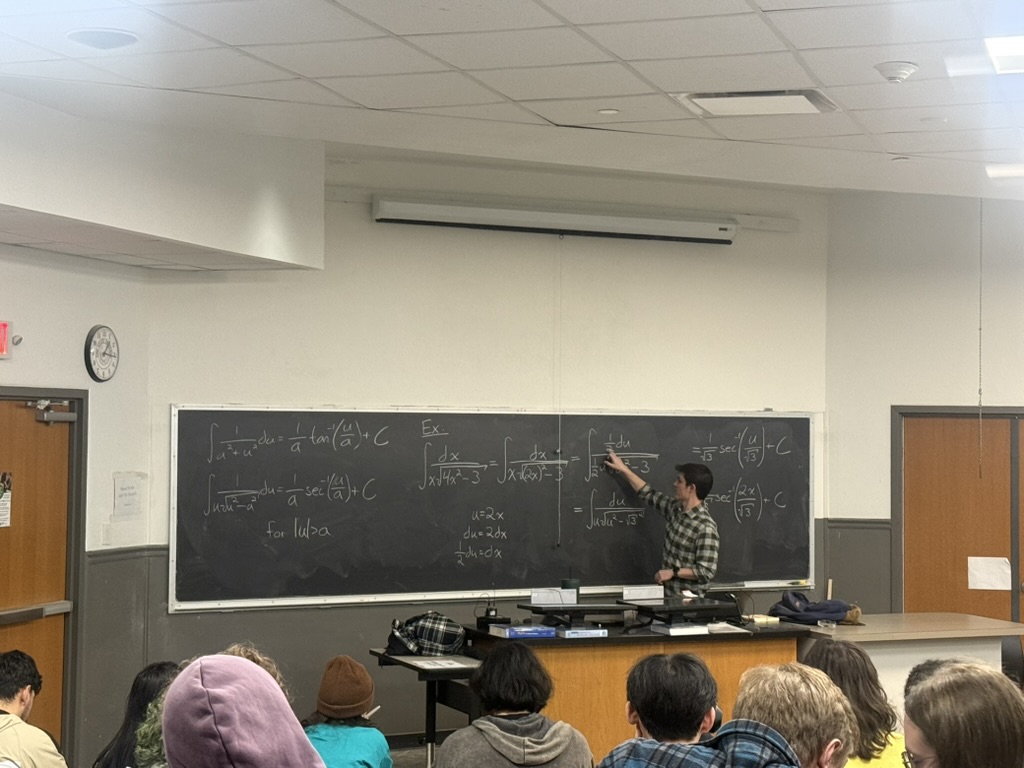 ∫ 1/(a²+u²) du = 1/a tan⁻¹(u/a) + C
∫ 1/(u√(u²-a²)) du = 1/a sec⁻¹(u/a) + C
for |u|>a
Ex:
∫ dx/(x√(4x²-3)) = ∫ dx/(x√((2x)²-3)) =
u=2x
du=2dx
½du=dx
= ∫ du/(u√(u²-√3²))
= 1/√3 sec⁻¹(u/√3) + C
sec⁻¹(2x/√3) + C